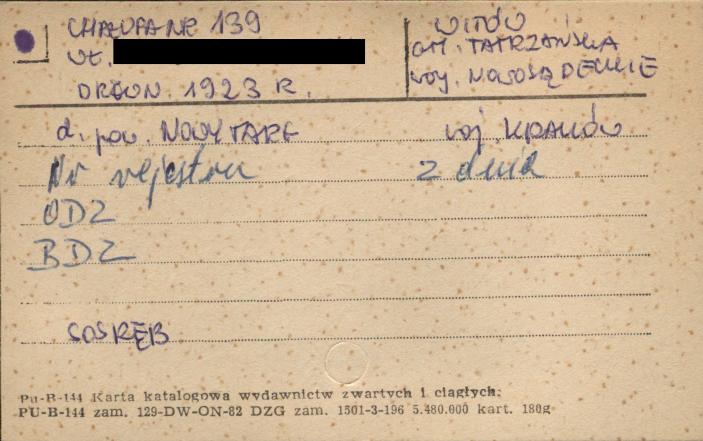 CHAŁUPA NR 139
WŁ.
DREWN. 1923 R.
WITÓW
GM. TATRZAŃSKA
WOJ. NOWOSĄDECKIE
d. pow. NOWY TARG woj. KRAKÓW
Nr rejestru z dnia
ODZ
BDZ
SOSRĘB
Pu-B-144 Karta katalogowa wydawnictw zwartych i ciągłych:
PU-B-144 zam. 129-DW-ON-82 DZG zam. 1501-3-196 5.480.000 kart. 180g